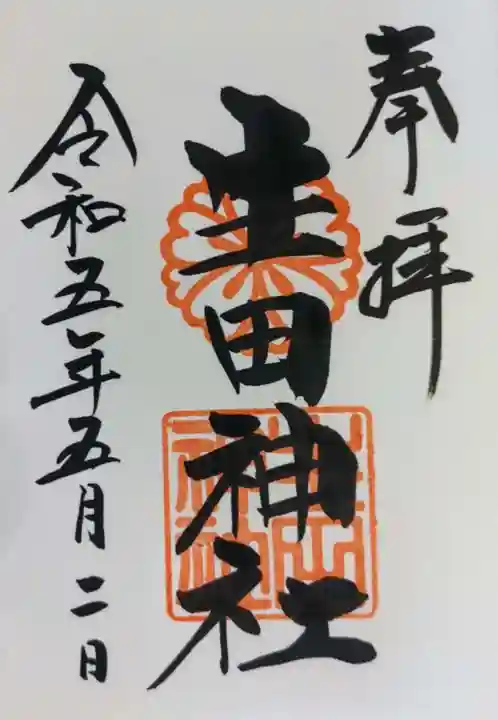 奉拝
生田神社
令和五年五月二日